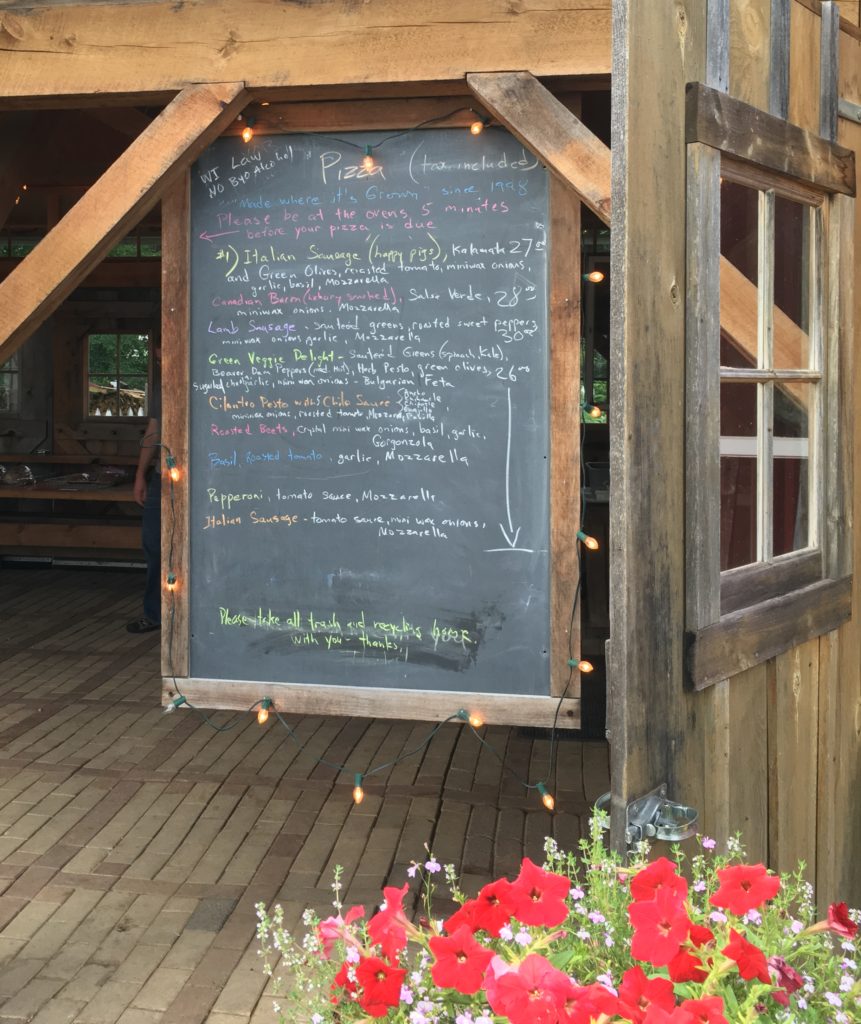 WI Law
NO BYO Alcohol
Pizza (tax included)
"Made where it's Grown" since 1998
Please be at the ovens 5 minutes
before your pizza is due
#1) Italian Sausage (happy pigs), Kalamata 27⁰⁰
and Green Olives, roasted tomato, miniwax onions,
garlic, basil, Mozzarella
Canadian Bacon (hickory smoked), Salsa Verde, 28⁰⁰
miniwax onions. Mozzarella
Lamb Sausage - Sauteed greens, roasted sweet peppers
mini wax onions garlic, Mozzarella 30⁰⁰
Green Veggie Delight - Sauteed Greens (Spinach, Kale),
Beaver Dam Peppers (med Hot), Herb Pesto, green olives, 26⁰⁰
garlic, mini wax onions - Bulgarian Feta
Cilantro Pesto with Chile Sauce
Ancho
Chipotle
miniwax onions, roasted tomato, Mozzarella
Roasted Beets, Crystal mini wax onions, basil, garlic,
Gorgonzola
Basil, Roasted tomato, garlic, Mozzarella
Pepperoni, tomato sauce, Mozzarella
Italian Sausage - tomato sauce, mini wax onions,
Mozzarella
Please take all trash and recycling home
with you - thanks!!